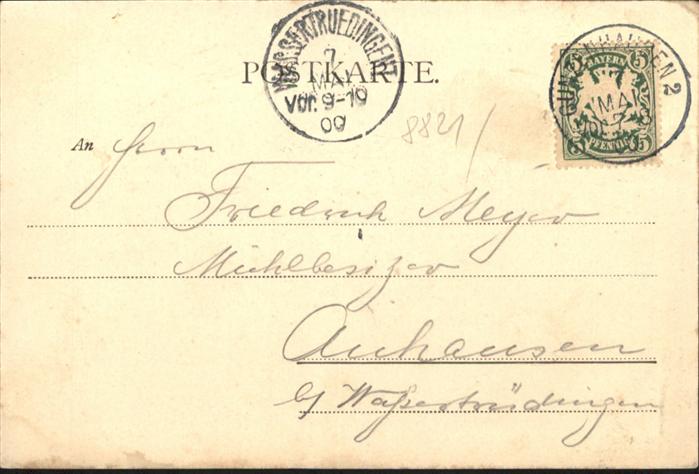 WASSERTRUEDINGEN
7
MAI
Vor. 9-10
00
POSTKARTE.
2
MAI
BAYERN
5 5
5 5
PFENNIG
8821
An Herrn
Friedrich Meyer
Mühlbesitzer
Auhausen
b/ Waßertrüdingen